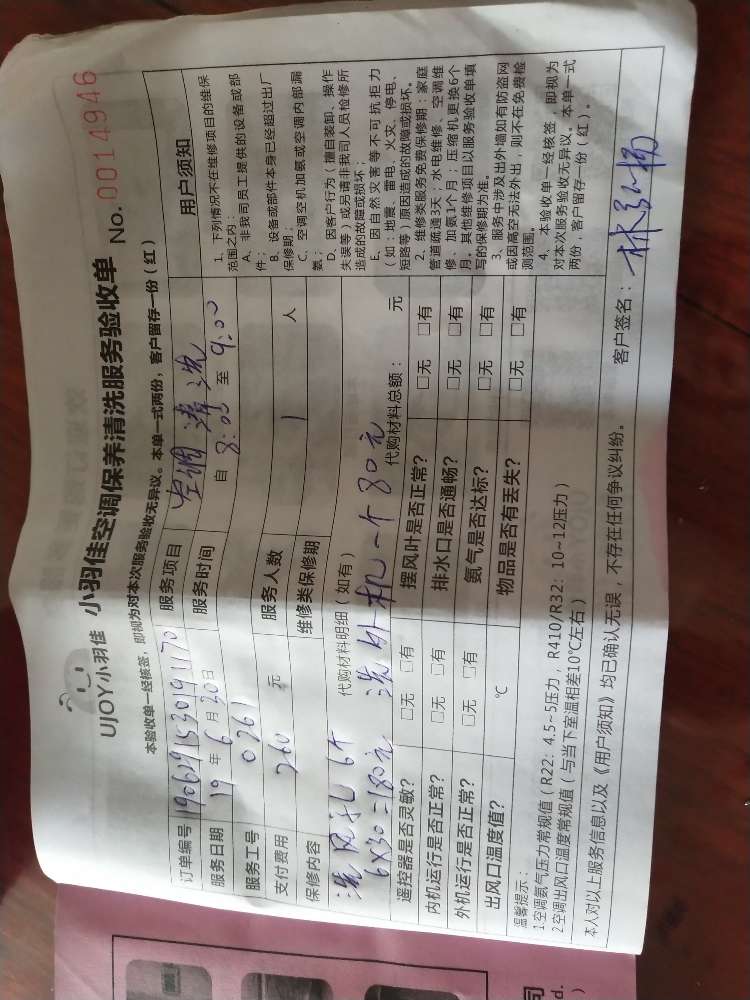 UJOY小羽佳 小羽佳空调保养清洗服务验收单 No. 0014946
本验收单一经核签，即视为对本次服务验收无异议。本单一式两份，客户留存一份（红）
订单编号 服务项目 空调清洗
服务日期 19 年 6 月 30 日 服务时间 自 8:00 至 9:00
服务工号 0261
支付费用 260 元 服务人数 1 人
保修内容 维修类保修期
代购材料明细（如有）
洗风扎 6个 洗外机一个80元
6×30=180元 代购材料总额： 元
遥控器是否灵敏? □无 □有 摆风叶是否正常? □无 □有
内机运行是否正常? □无 □有 排水口是否通畅? □无 □有
外机运行是否正常? □无 □有 氨气是否达标? □无 □有
出风口温度值? ℃ 物品是否有丢失? □无 □有
用户须知
1、下列情况不在维修项目的维保
范围之内：
A、非我司员工提供的设备或部
件；
B、设备或部件本身已经超过出厂
保修期；
C、空调空机加氨或空调内部漏
氨；
D、因客户行为（擅自装卸、操作
失误等）或另请非我司人员检修所
造成的故障或损坏；
E、因自然灾害等不可抗拒力
（如：地震、雷电、火灾、停电、
短路等）原因造成的故障或损坏。
2、维修类服务免费保修期：家庭
管道疏通3天；水电维修、空调维
修、加氨1个月；压缩机更换6个
月。其他维修项目以服务验收单填
写的保修期为准。
3、服务中涉及出外墙如有防盗网
或因高空无法外出，则不在免费检
测范围。
4、本验收单一经核签，即视为
对本次服务验收无异议。本单一式
两份，客户留存一份（红）。
温馨提示：
1.空调氨气压力常规值（R22：4.5~5压力，R410/R32：10~12压力）
2.空调出风口温度常规值（与当下室温相差10℃左右）
本人对以上服务信息以及《用户须知》均已确认无误，不存在任何争议纠纷。
客户签名：
司
d.